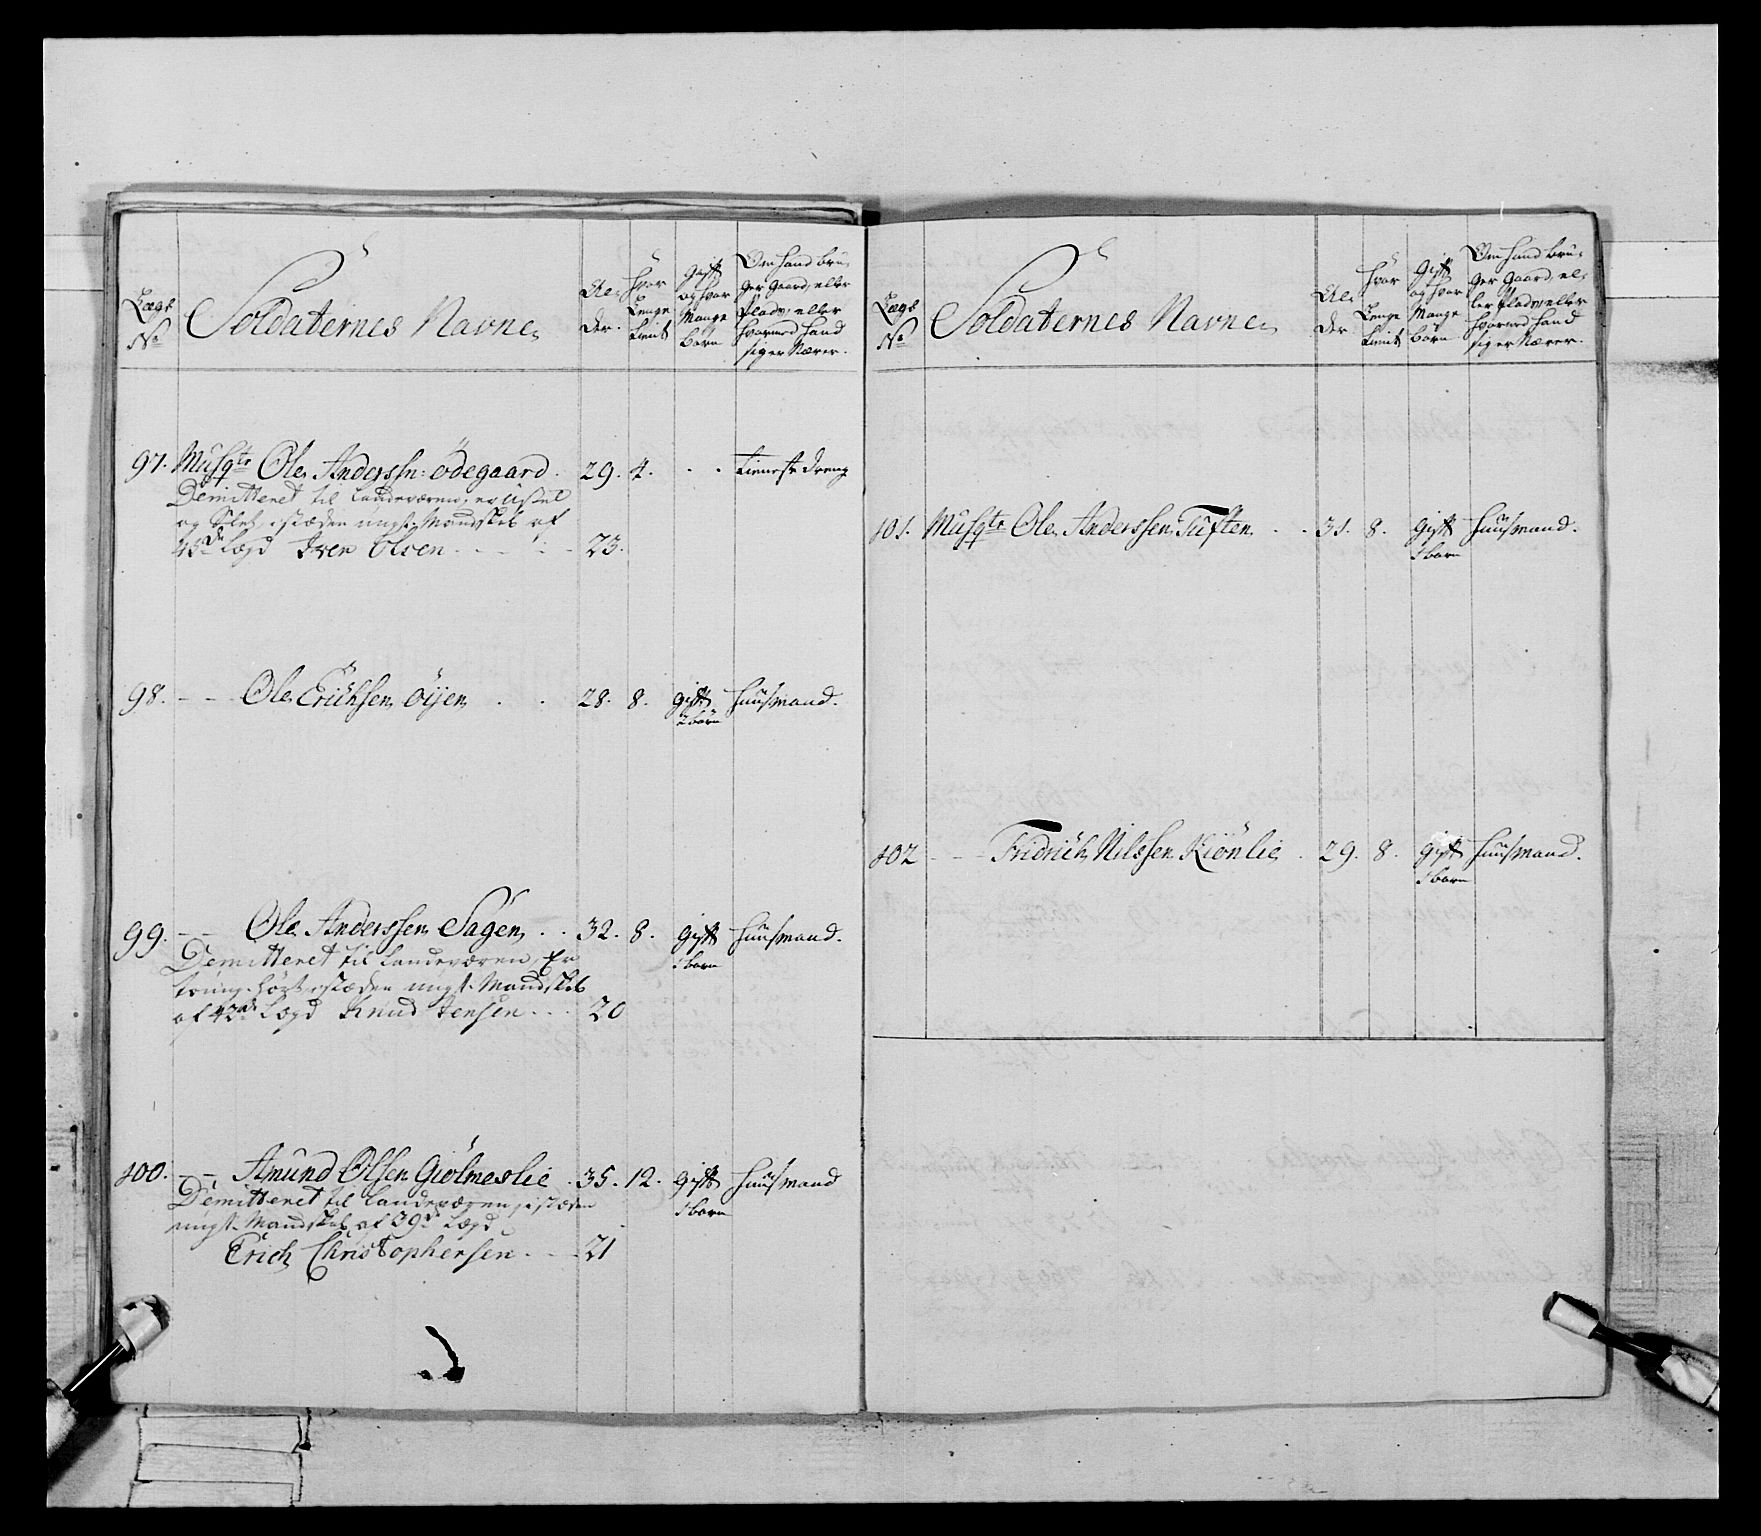 Lægs No
Soldaternes Navne
Al-
der.
Hvor
Lenge
tient
Gift
og hvor
Mange
Børn
Om hand bru-
ger gaard, eller
plads, eller
hvormed hand
sig er Nærer.
97. Musqtr Ole Anderssn: Ödegaard . 29. 4. . . tieneste dreng
Demitteret til Landeværen, er
og Slet, istæden ungt Mandskab af
45de Lægd Iver Olsen . . . 23.
98. - - Ole Erichsen Öyen . . 28. 8. gift huusmand.
2 børn
99. - - Ole Anderssen Sagen . . 32. 8. gift huusmand.
1 barn
Demitteret til Landeværen, Er
tung-hört istæden ungt Mandskab
af 42de Lægd Knud Jensen . . . 20
100. - - Amund Olsen Giölmeslie . 35. 12. gift huusmand
1 barn
Demitteret til Landeværen, istæden
ungt Mandskab af 39de Lægd
Erich Christophersen . . . 21
Lægs No
Soldaternes Navne
Al-
der
Hvor
Lenge
tient
Gift
og hvor
Mange
børn
Om hand bru-
ger Gaard, el-
ler plads, eller
hvormed hand
sig er Nærer.
101. Musqtr Ole Anderssen Tuften . . 31. 8. gift huusmand.
1 barn
102 - - Fridrich Nilssen Kiönlie . 29. 8. gift huusmand.
1 barn